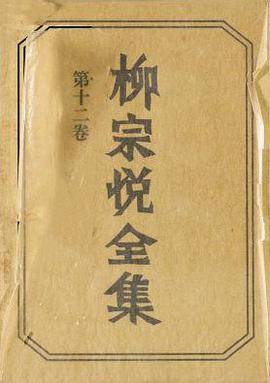 柳宗悦全集
第十二卷